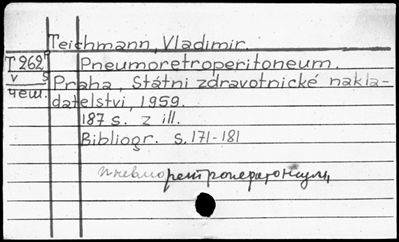 Teichmann, Vladimir.
T 262 Pneumoretroperitoneum.
v Praha, Státní zdravotnické nakla-
чеш. datelství, 1959.
187 s. z ill.
Bibliogr. s. 171-181
пневморетроперитонеум